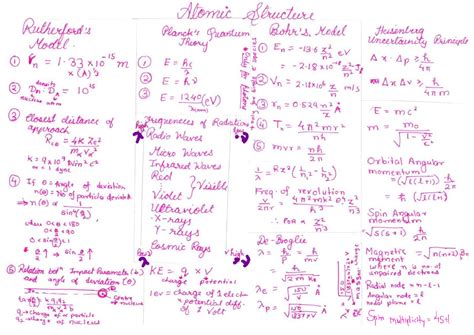 Atomic Structure
Rutherford's
Model
① rn = 1.33 × 10⁻¹⁵ m
× (A)^⅓
density
② Dn : Da = 10¹⁵
nucleus atom
③ Closest distance of
approach
K = 9 × 10⁹
④ If θ = Angle of deviation
n(θ) = No of particle deviated
→ n(θ) ∝ 1/sin⁴(θ/2)
where 0 < θ < 180
⑤ Relation bet" Impact Parameter (b)
and angle of deviation (θ)
Centre
nucleus
q₁ → charge of α particle
q₂ → charge of nucleus
Planck's Quantum
Theory
① E = hc/λ
② E = hν
③ E = 1240 (eV)/λ(nm)
Frequencies of Radiation
Radio Waves
Micro Waves
Infrared Waves
Red
Violet } Visible
Ultraviolet
X-rays
γ-rays
Cosmic Rays
high
KE = q × V
charge potential
1eV = charge of 1 electron
× potential diff.
of 1 Volt
Bohr's Model
① En = -13.6 z²/n² eV
= -2.18 × 10⁻¹⁸ z²/n² J
② Vn = 2.18 × 10⁶ z/n m/s
③ rn = 0.529 n²/z Å
④ Tn = 4π²mr²/nh
⑤ mvr = nh/2π
1/λ = Rz² (1/n₁² - 1/n₂²)
Freq. of revolution
v/2πr = z²/n³
∴ for α z²/n³
De-Broglie
λ = h/mv
λe = √150/V Å
Heisenberg
Uncertainty Principle
Δx · Δp ≥ h/4π
Δx Δv ≥ h/4πm
E = mc²
m = m₀/√(1 - v²/c²)
Orbital Angular
momentum
= √(l(l+1)) h/2π
Spin Angular
momentum
√(s(s+1)) h/2π
Magnetic = √(n(n+2)) Bm
moment
where n is no of
unpaired electrons
Radial node = n-l-1
Angular node = l
nodal plane = l
Spin multiplicity = 2S+1